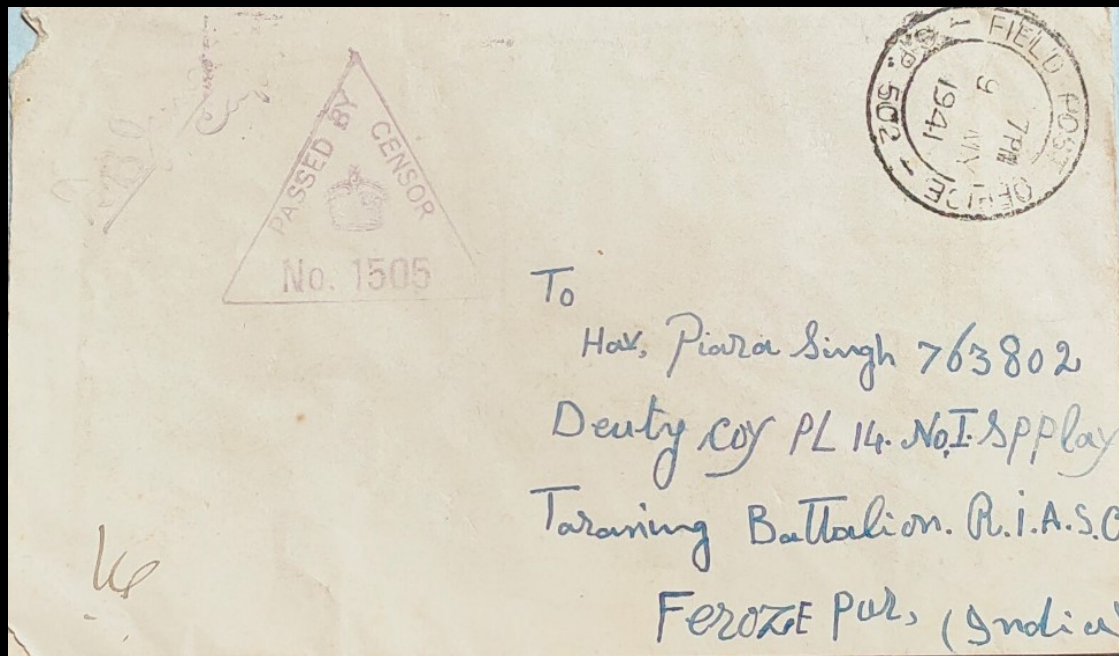 PASSED BY CENSOR
No. 1505
FIELD POST OFFICE
S.P. 502
7PM
9 MY
1941
To
Hav. Piara Singh 763802
Deuty coy PL 14. No,I. Spplay
Taraning Battalion. R.I.A.S.C
FEROZE pur, (India)